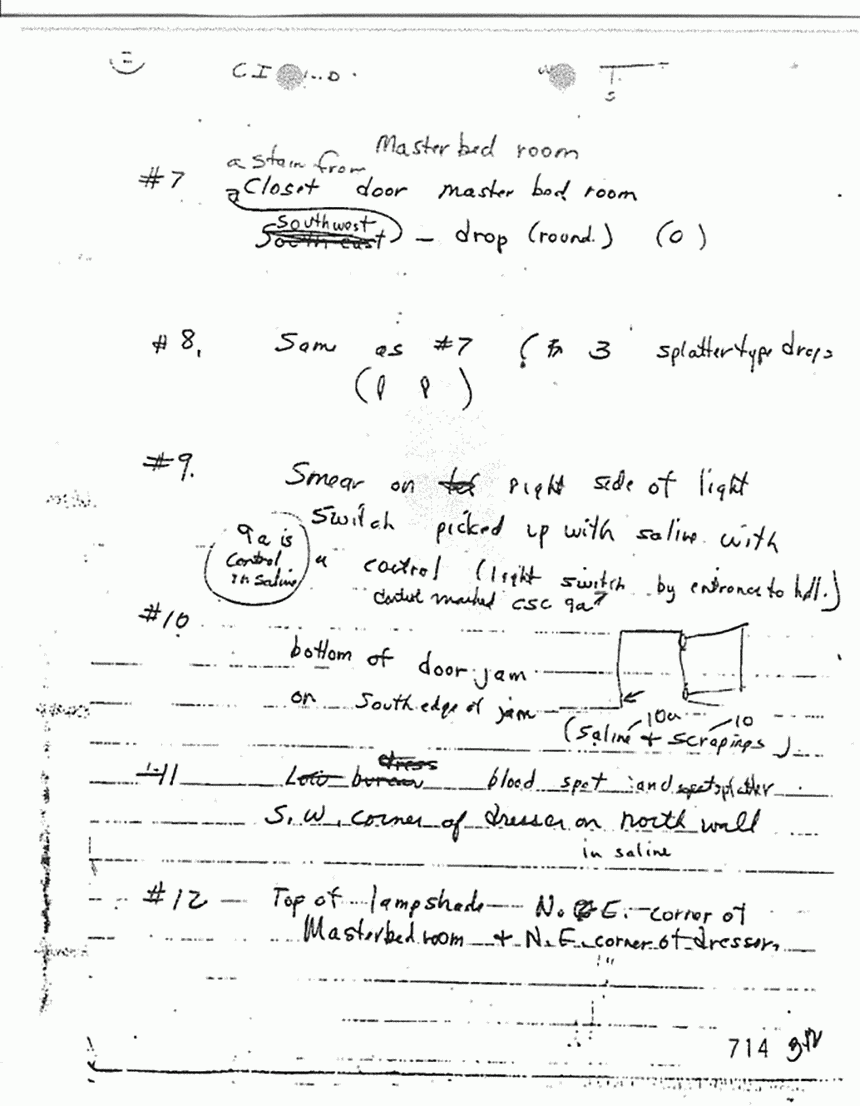 Master bed room
a stain from
#7 a Closet door master bed room
southwest
south east - drop (round.) (0)
#8, Same as #7 ( 3 splatter type drops
#9. Smear on right side of light
switch picked up with saline with
9a is
control
in saline
a control (light switch by entrance to hall.)
control marked CSC 9a
#10
bottom of door jam
on South edge of jam
10a 10
(saline + scrapings)
11 Low bureau dress blood spot and splatter
S.W. corner of dresser on north wall
in saline
#12 - Top of lampshade - N.E. corner of
Master bed room + N.E. corner of dresser,
714